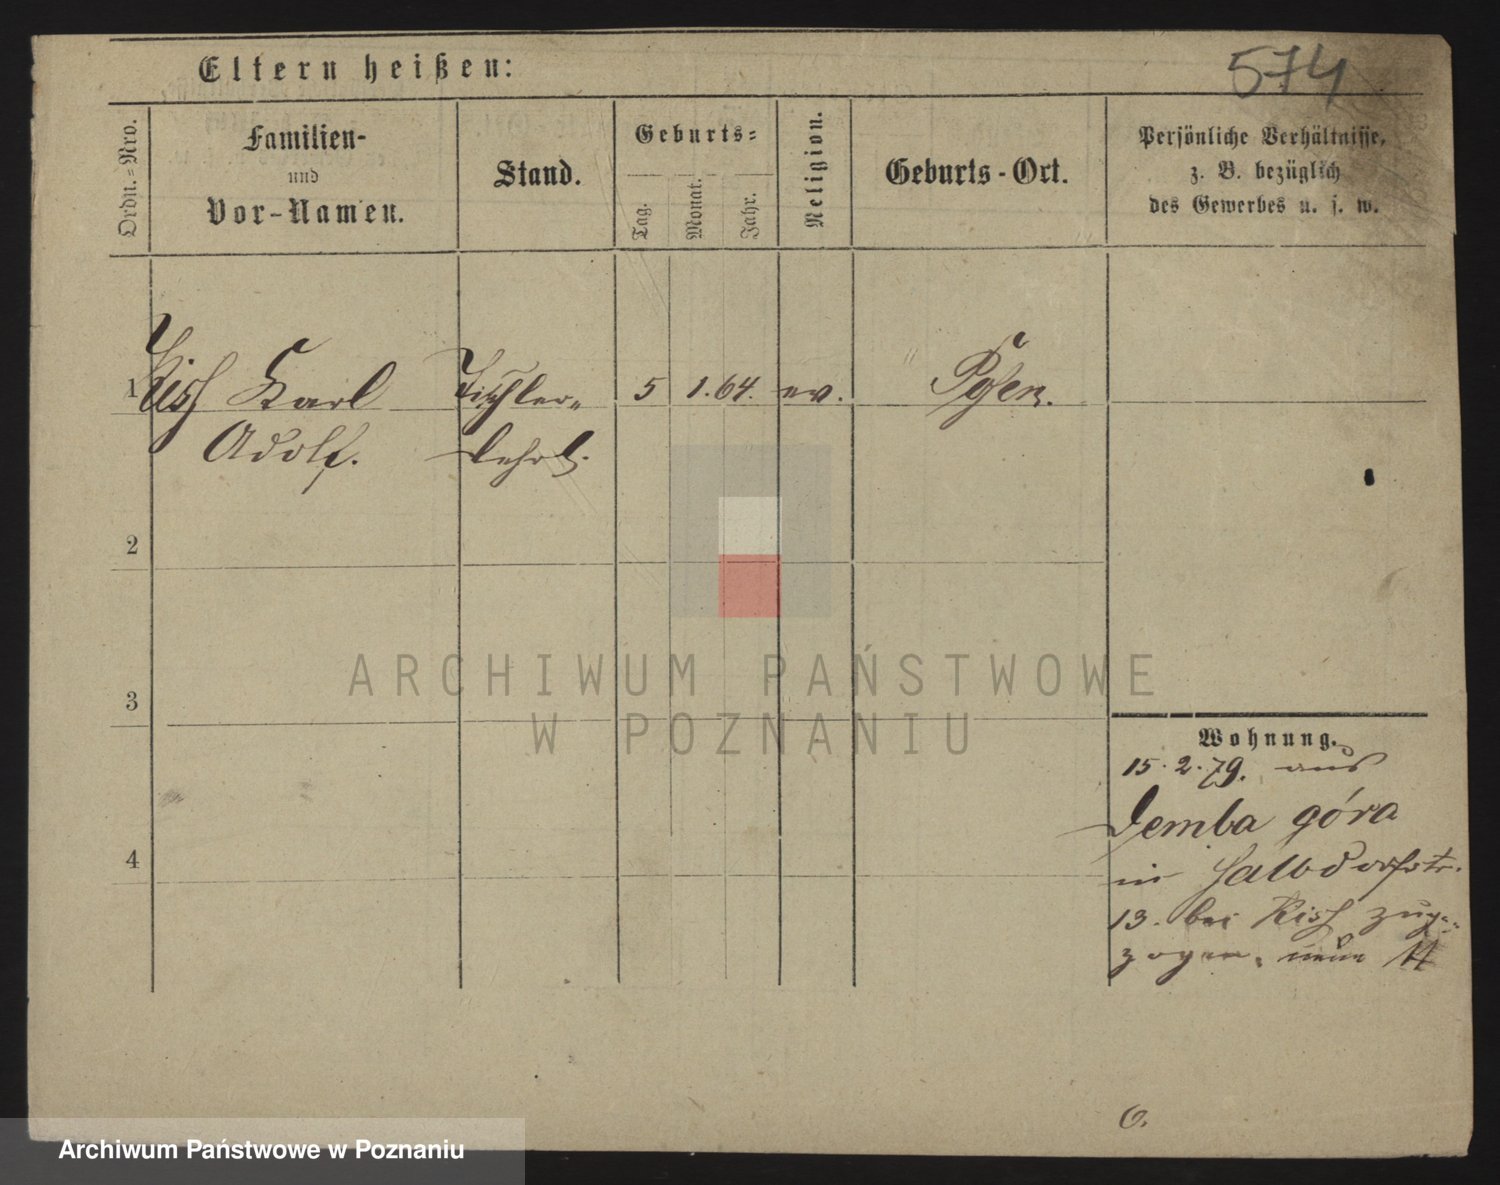 574
Eltern heißen:
Ordn.-Nro.
Familien-
und
Vor-Namen.
Stand.
Geburts-
Tag.
Monat.
Jahr.
Religion.
Geburts-Ort.
Persönliche Verhältnisse,
z. B. bezüglich
des Gewerbes u. s. w.
1 Kisch Karl Tischler- 5 1. 64. ev. Posen.
Adolf. Lehrl.
2
3
4
Wohnung.
15. 2. 79. aus
Demba góra
in Halbdorfstr.
13. bei Kisch zuge-
zogen. neue 11
6.
ARCHIWUM PAŃSTWOWE
W POZNANIU
Archiwum Państwowe w Poznaniu